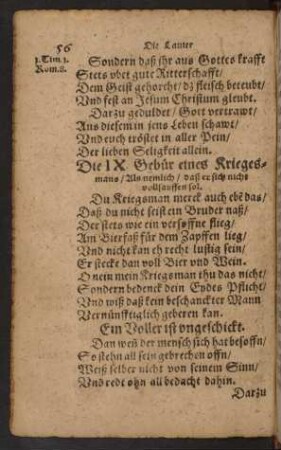 56
Die Lauter
1. Tim. 1.
Rom. 8.
Sondern daß jhr aus Gottes krafft
Stets vbet gute Ritterschafft/
Dem Geist gehorcht/ dz fleisch beteubt/
Vnd fest an Jesum Christum gleubt.
Darzu geduldet/ Gott vertrawt/
Aus diesem in jens Leben schawt/
Vnd euch tröstet in aller Pein/
Der lieben Seligkeit allein.
Die IX. Gebür eines Krieges-
mans/ Als nemlich/ daß er sich nicht
vollsauffen sol.
Du Kriegsman merck auch ebē das/
Daß du nicht seist ein Bruder naß/
Der stets wie ein versoffne flieg/
Am Bierfaß für dem Zapffen lieg/
Vnd nicht kan eh recht lustig sein/
Er stecke dan voll Bier vnd Wein.
O nein mein Kriegsman thu das nicht/
Sondern bedenck dein Eydes Pflicht/
Vnd wiß daß kein beschanckter Mann
Vernünfftiglich geberen kan.
Ein Voller ist vngeschickt.
Dan weñ der mensch sich hat besoffn/
So stehn all sein gebrechen offn/
Weiß selber nicht von seinem Sinn/
Vnd redt ohn all bedacht dahin.
Darzu